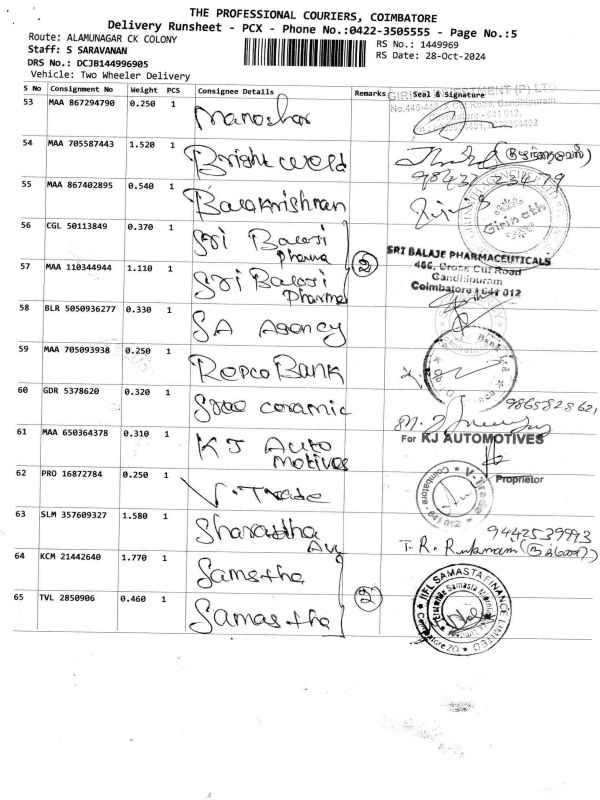 THE PROFESSIONAL COURIERS, COIMBATORE
Delivery Runsheet - PCX - Phone No.:0422-3505555 - Page No.:5
Route: ALAMUNAGAR CK COLONY
RS No.: 1449969
Staff: S SARAVANAN
RS Date: 28-Oct-2024
DRS No.: DCJB144996905
Vehicle: Two Wheeler Delivery
S No Consignment No Weight PCS Consignee Details Remarks Seal & Signature
53 MAA 867294790 0.250 1 Manoshar
54 MAA 705587443 1.520 1 Bright weld
55 MAA 867402895 0.540 1 Balakrishnan
Girinath
56 CGL 50113849 0.370 1 Sri Balaji
Pharma
2
SRI BALAJE PHARMACEUTICALS
466, Cross Cut Road
Gandhipuram
Coimbatore - 641 012
57 MAA 110344944 1.110 1 Sri Balaji
Pharma
58 BLR 5050936277 0.330 1 SA Agency
59 MAA 705093938 0.250 1 Repco Bank
60 GDR 5378620 0.320 1 Sree ceramic
9865828621
61 MAA 650364378 0.310 1 KJ Auto
motives
For KJ AUTOMOTIVES
Proprietor
62 PRO 16872784 0.250 1 V. Trade
V-Trade
Coimbatore - 641 012
63 SLM 357609327 1.580 1 Sharastha
Av
9442539993
64 KCM 21442640 1.770 1 Samastha
2
IIFL SAMASTA FINANCE LIMITED
Coimbatore ZO
65 TVL 2850906 0.460 1 Samastha